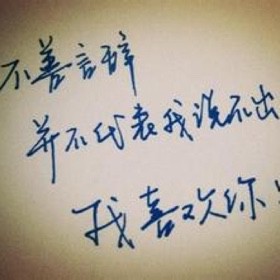 不善言辞
并不代表我说不出
我喜欢你